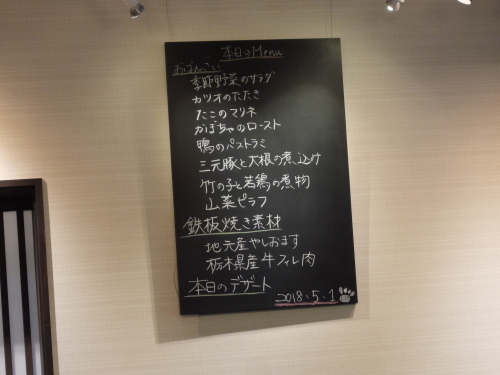 本日のMenu
おばんざい
季節野菜のサラダ
カツオのたたき
たこのマリネ
かぼちゃのロースト
鴨のパストラミ
三元豚と大根の煮込け
竹の子と若鶏の煮物
山菜ピラフ
鉄板焼き素材
地元産やしおます
栃木県産牛フィレ肉
本日のデザート
2018.5.1